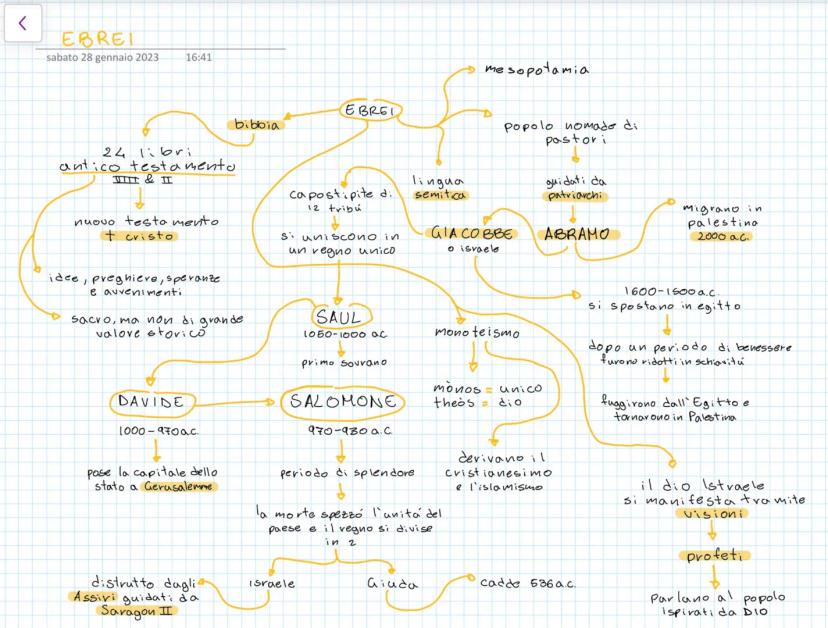 EBREI
sabato 28 gennaio 2023 16:41
mesopotamia
EBREI
bibbia
popolo nomade di
pastori
24 libri
antico testamento
VIIII & II
lingua
semitica
guidati da
patriarchi
capostipite di
12 tribú
migrano in
palestina
2000 a.C.
nuovo testamento
† cristo
si uniscono in
un regno unico
GIACOBBE
o israele
ABRAMO
idee, preghiere, speranze
e avvenimenti
1600-1500 a.C.
si spostano in egitto
sacro, ma non di grande
valore storico
SAUL
1050-1000 a.C
monoteismo
dopo un periodo di benessere
furono ridotti in schiavitú
primo sovrano
mònos = unico
theòs = dio
DAVIDE
SALOMONE
fuggirono dall'Egitto e
tornarono in Palestina
1000-970 a.C.
970-930 a.C.
derivano il
cristianesimo
e l'islamismo
pose la capitale dello
stato a Gerusalemme
periodo di splendore
il dio Istraele
si manifesta tramite
visioni
la morte spezzó l'unitá del
paese e il regno si divise
in 2
profeti
distrutto dagli
Assiri guidati da
Saragon II
israele
Giuda
cadde 586 a.C.
parlano al popolo
ispirati da DIO